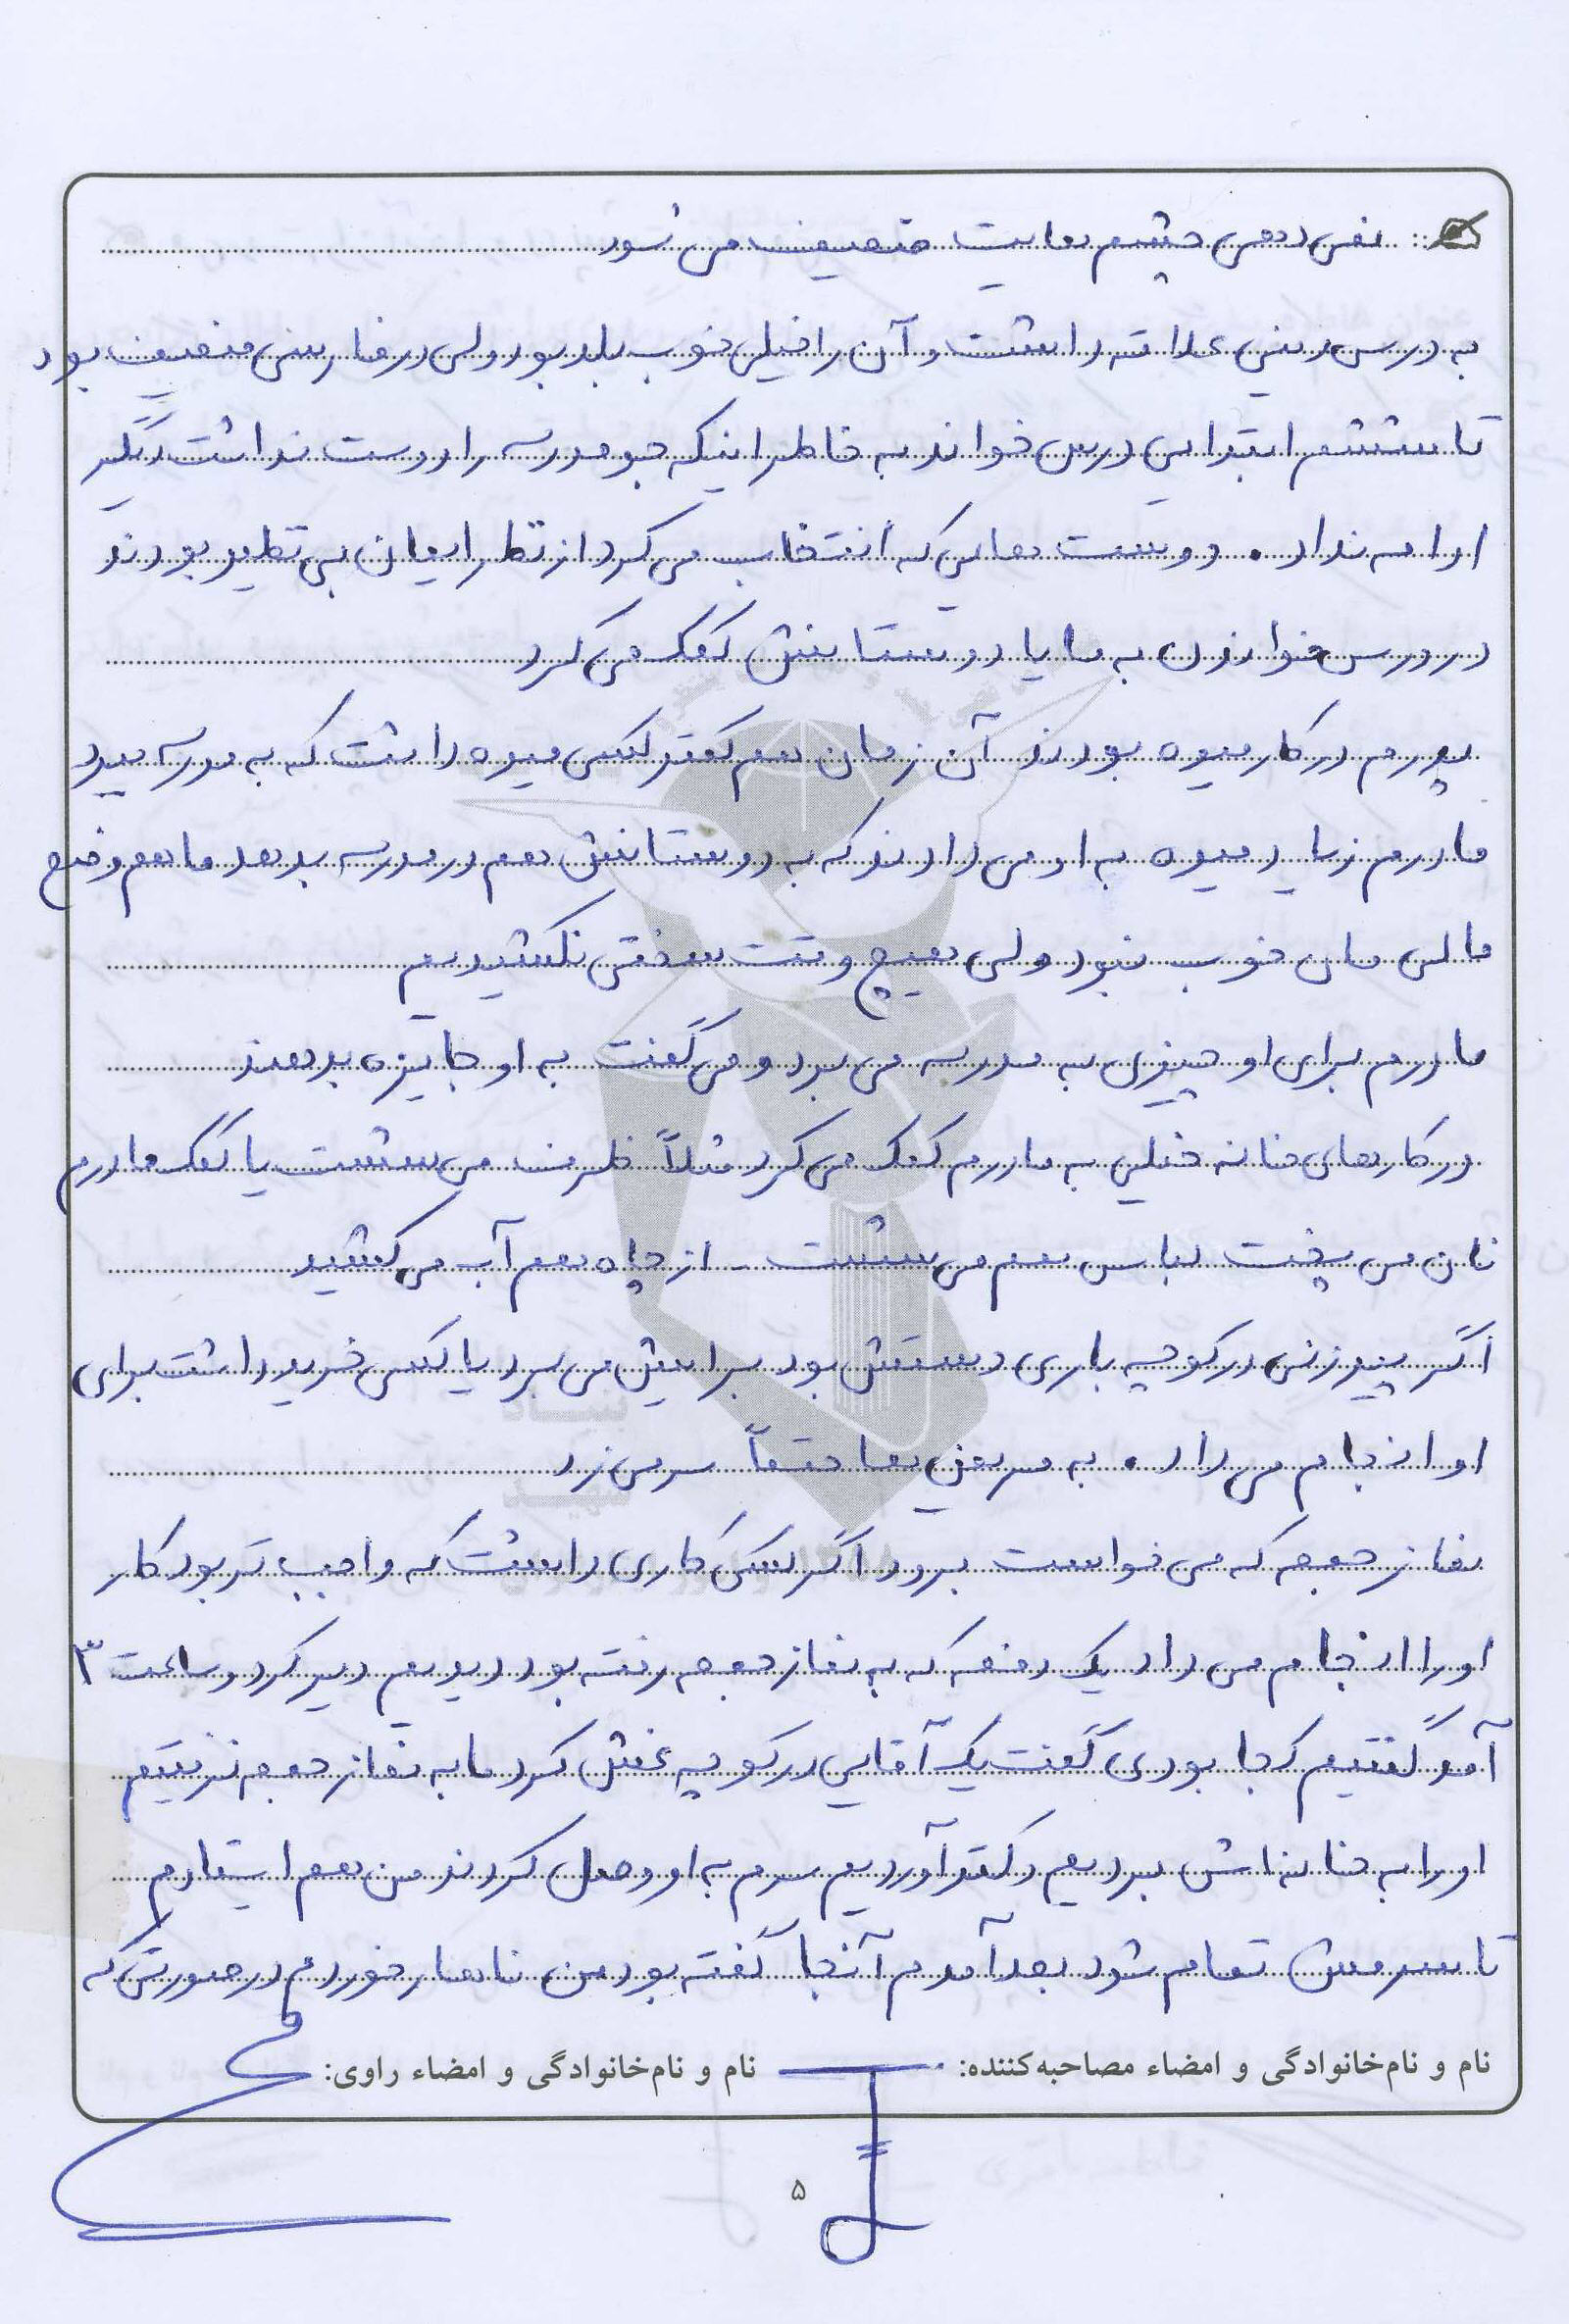 نمی دهی چشم هایت ضعیف می شود
به درس دینی علاقه داشت و آن را خیلی خوب بلد بود ولی در فارسی ضعیف بود
تا ششم ابتدایی درس خواند به خاطر اینکه جو مدرسه را دوست نداشت دیگر
ادامه نداد. دوست هایی که انتخاب می کرد از نظر ایمان بی نظیر بودند
در درس خواندن به ما یا دوستانش کمک می کرد
پدرم در کار میوه بودند آن زمان هم کمتر کسی میوه داشت که به مدرسه ببرد
مادرم زیاد میوه به او می دادند که به دوستانش هم در مدرسه بدهد ما هم وضع
مالی مان خوب نبود ولی هیچ وقت سختی نکشیدیم
مادرم برای او چیزی به مدرسه می برد و می گفت به او جایزه بدهند
در کارهای خانه خیلی به مادرم کمک می کرد مثلاً ظرف می شست یا کمک مادرم
نان می پخت لباس هم می شست - از چاه هم آب می کشید
اگر پیرزنی در کوچه باری دستش بود برایش می برد یا کسی خرید داشت برای
او انجام می داد. به مریض ها حتماً سر می زد
نماز جمعه که می خواست برود اگر کسی کاری داشت که واجب تر بود کار
او را انجام می داد یک دفعه که به نماز جمعه رفته بود دیدیم دیر کرد و ساعت ۳
آمد گفتیم کجا بودی گفت یک آقایی در کوچه غش کرد ما به نماز جمعه نرفتیم
او را به خانه اش بردیم دکتر آوردیم سرم به او وصل کردند من هم ایستادم
تا سرمش تمام شود بعد آمدم آنجا گفته بود من ناهار خوردم در صورتی که
نام و نام‌خانوادگی و امضاء مصاحبه‌کننده: نام و نام‌خانوادگی و امضاء راوی:
۵